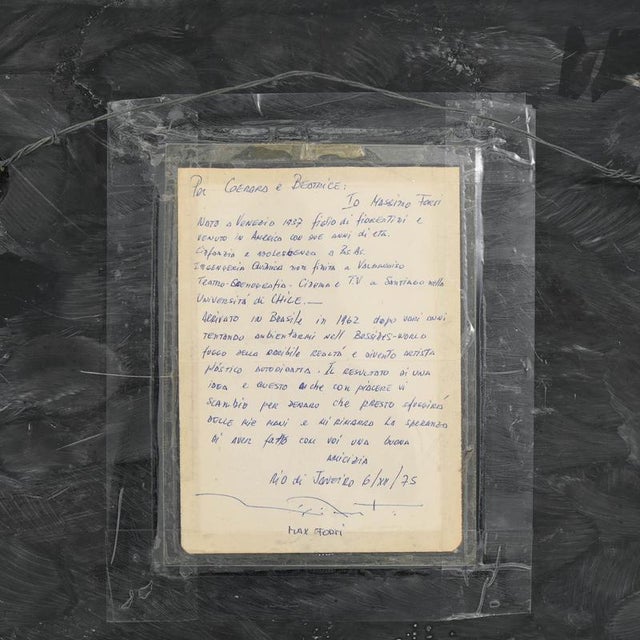 Per Gerardo e Beatrice:
Io Massimo Forti
Nato a Venezio 1937 figlio di fiorentini e
venuto in America con due anni di età.
Infanzia e adolescenza a Bs. As.
Ingegneria Quimica non finita a Valparaiso
Teatro-Scenografia-Cinema e TV a Santiago nella
Università di CHILE.—
Arrivato in Brasile in 1962 dopo vari anni
tentando ambientarmi nell
fuggo della orribile realtà e divento artista
plástico autodidatta. Il resultato di una
idea è questo che con piacere vi
scambio per denaro che presto sfuggirà
delle mie mani e mi rimarrà la speranza
di aver fatto con voi una buona
amicizia
Rio di Janeiro 6/XII/75
Max Forti